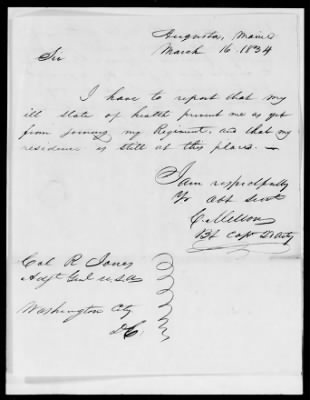 Augusta, Maine
March 16 1834
Sir
I have to report that my
ill state of health prevent me as yet
from joining my Regiment, and that my
residence is still at this place. —
I am respectfully
Yr obt Servt
C. Mellon
Bt Capt
Col R Jones
Adjt Genl U.S.A
Washington City
D.C.